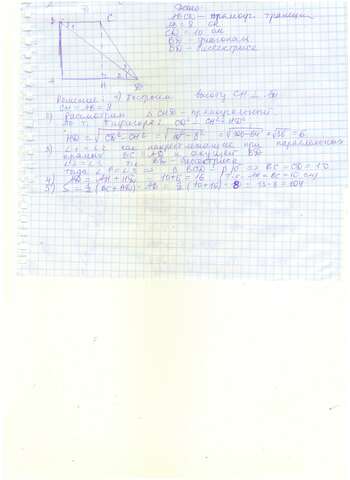 Дано:
ABCD – прямоуг. трапеция
AB = 8 см
CD = 10 см
BD – диагональ
BD – биссектриса
B C
A H D
Решение: 1) Построим высоту CH ⊥ AD
CH = AB = 8
2) Рассмотрим △CHD – прямоугольный.
По т. Пифагора: CD² = CH² + HD²
HD = √CD² - CH² = √10² - 8² = √100-64 = √36 = 6
3) ∠1 = ∠2 как накрестлежащие при параллельных
прямых BC AD и секущей BD
т.к. BD – биссектриса
тогда ⇒ △ BCD – р/б ⇒ BC = CD = 10
4) AD = AH + HD = 10+6 = 16 (т.к. AH = BC = 10 см)
5) S = 1/2 (BC+AD) · AB = 1/2 (10+16) · 8 = 13 · 8 = 104